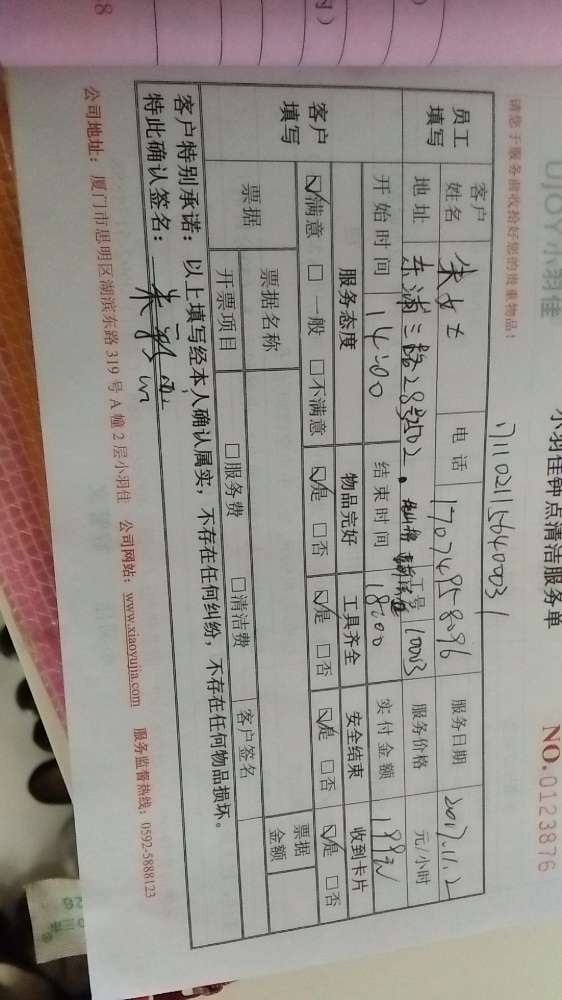 UJOY小羽佳
小羽佳钟点清洁服务单
NO.0123876
请您于服务前收拾好您的贵重物品！
171102115640031
员工填写
客户姓名 朱女士 电话 17074958096 服务日期 2017.11.2
地址 东浦三路28号502 工号 10003 服务价格 元/小时
客户填写
开始时间 14:00 结束时间 18:00 实付金额 199元
服务态度 物品完好 工具齐全 安全结束 收到卡片
☑满意 □一般 □不满意 ☑是 □否 ☑是 □否 ☑是 □否 ☑是 □否
票据 票据名称 票据金额
开票项目 □服务费 □清洁费 客户签名
客户特别承诺：以上填写经本人确认属实，不存在任何纠纷，不存在任何物品损坏。
特此确认签名：
公司地址：厦门市思明区湖滨东路319号A幢2层小羽佳 公司网站：www.xiaoyujia.com 服务监督热线：0592-5888123